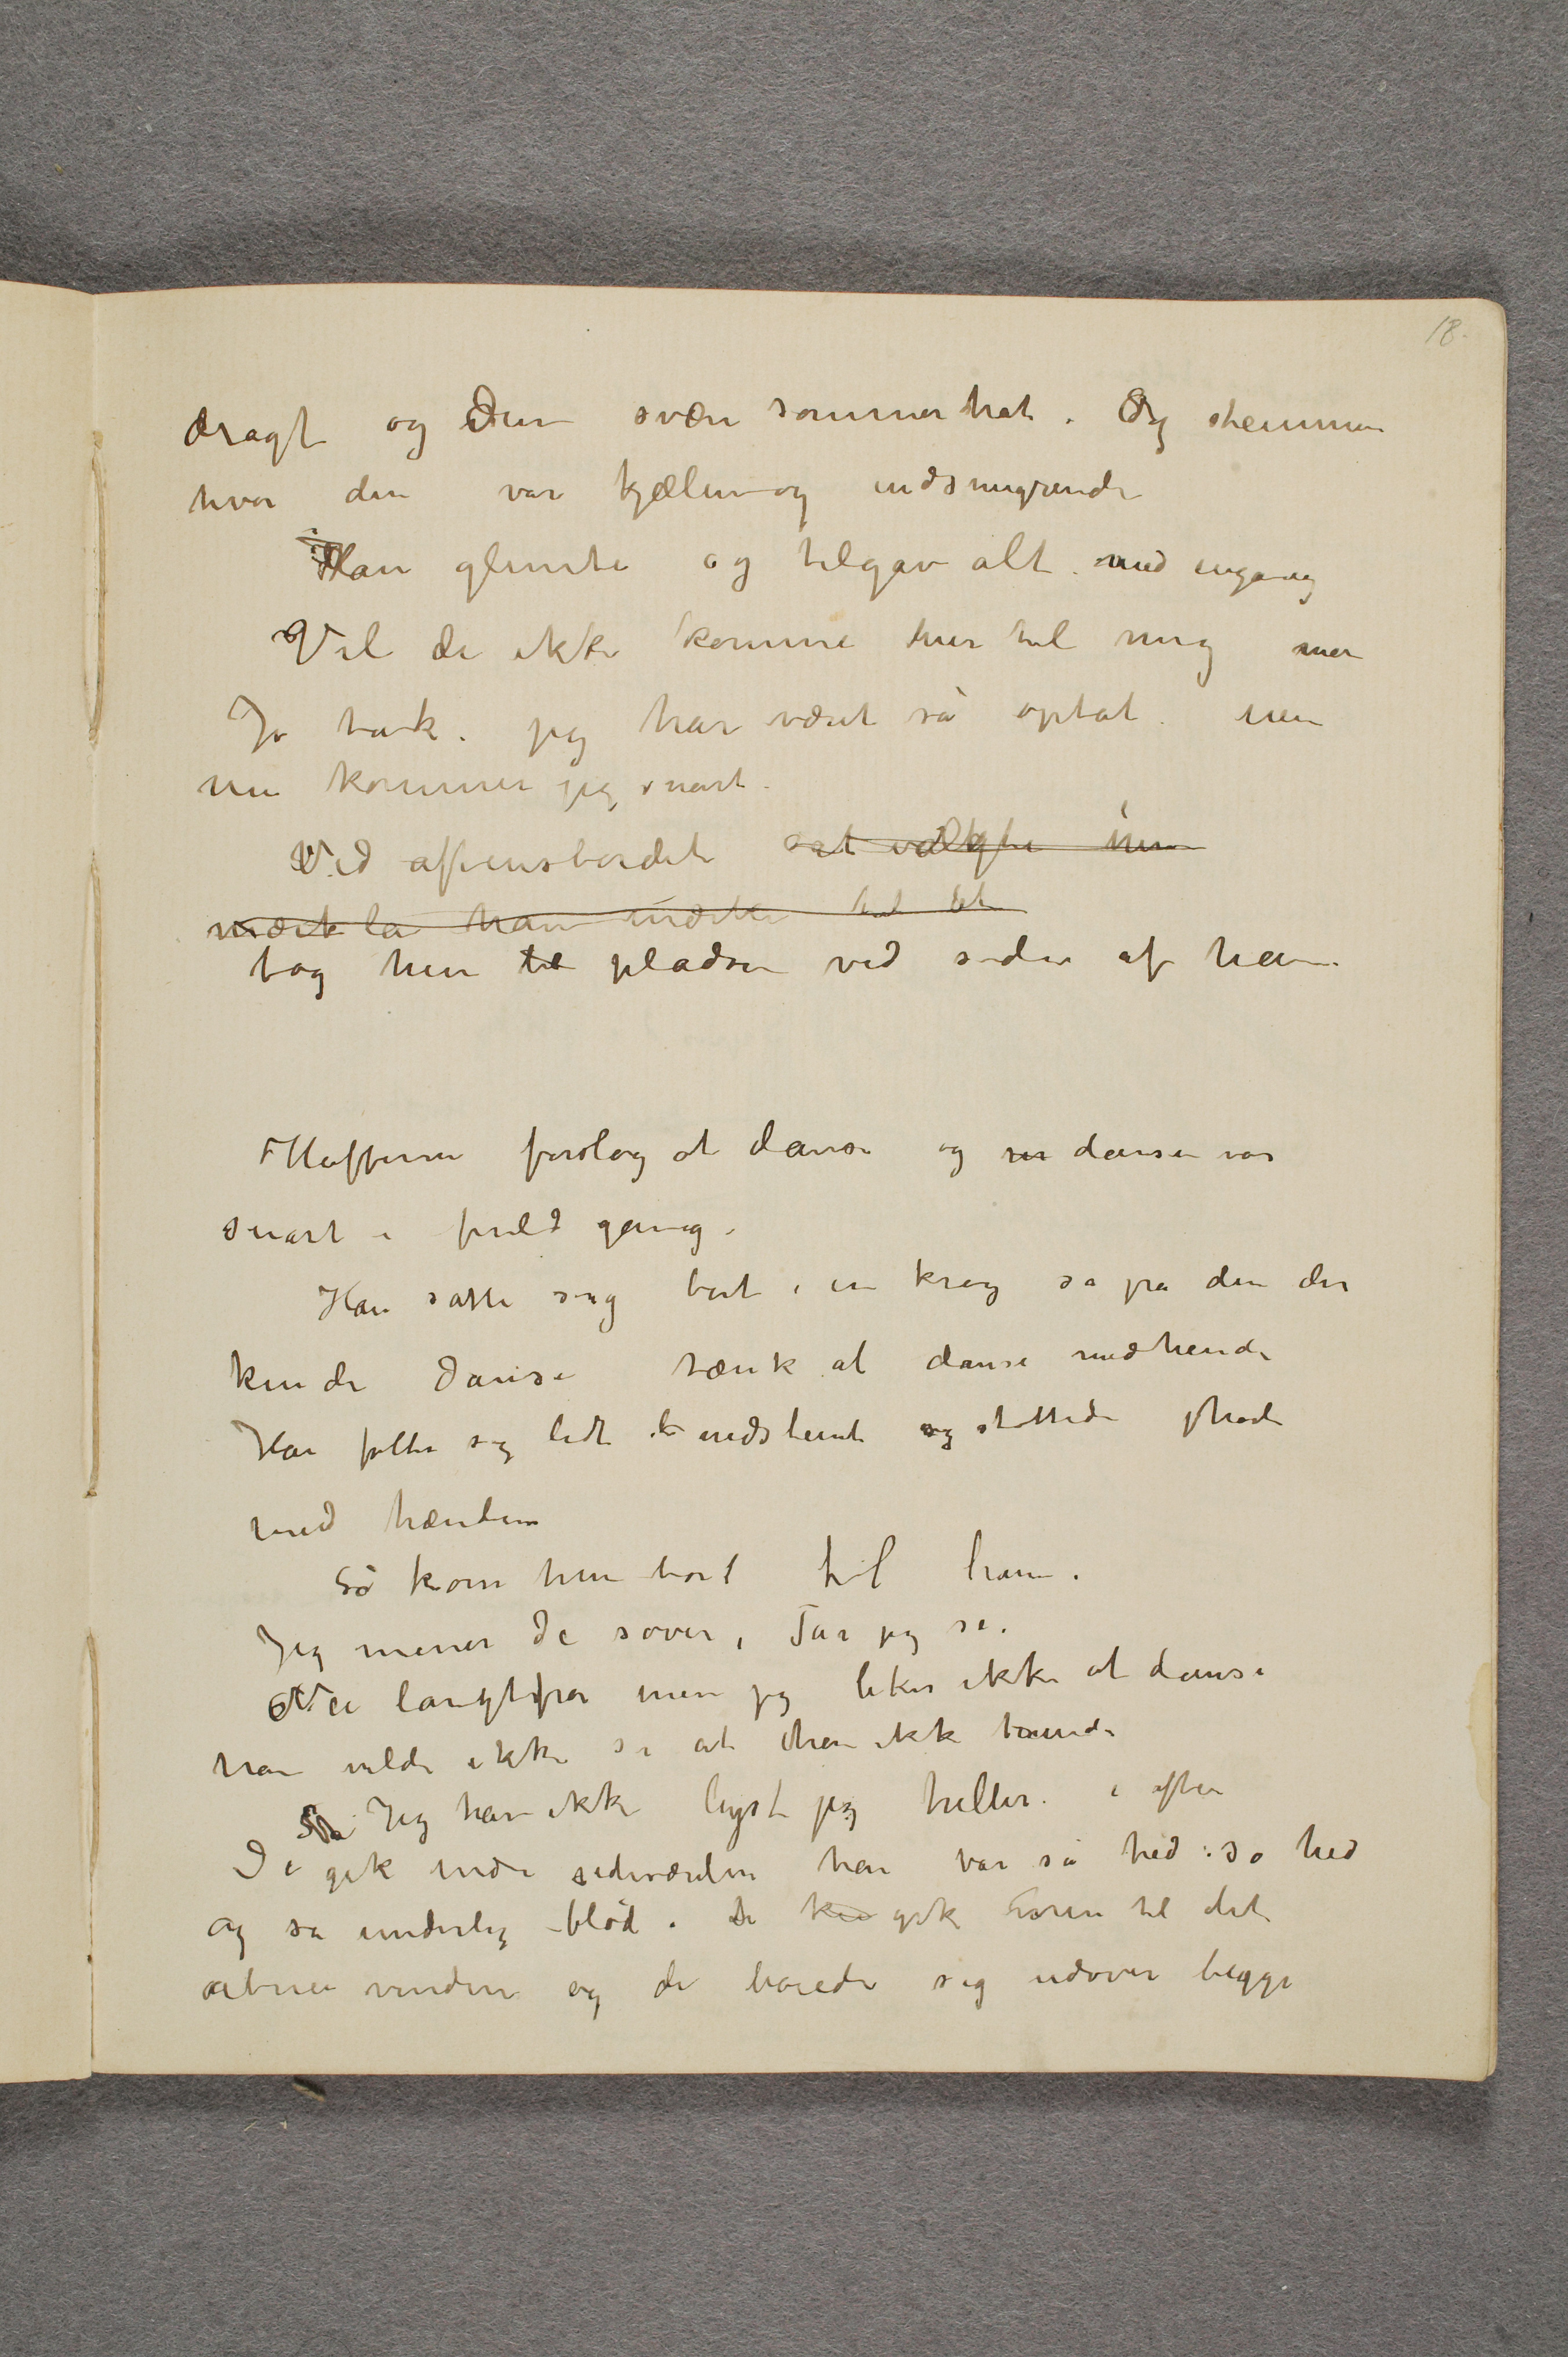 18.
dragt og den svær sommerhat. Og stemmen
hvor den var kjælen og indsmigrende
Han glemte og tilgav alt med engang
Vil de ikke komme her til mig mer
Jo tak. jeg har været så optat. men
nu kommer jeg snart.
Ved aftensbordet at valgte hun
han mærkte til det
tog hun til pladsen ved siden af ham.
forslog at danse og dansen var
snart i fuld gang.
Han satte sig bort i en krog så på dem der
kunde danse tænk at danse med hende
Han følte sig lidt nedstemt og støttede
med hænderne
Så kom hun bort til ham.
Jeg mener de sover, sa jeg så.
Nei langtfra men jeg liker ikke at danse
han vilde ikke si at han ikke kunde
Jeg har ikke lyst jeg heller i aften
De gik ind i sideværelset han var så hed: så hed
og så underlig blød. De gik hen til det
åbne vindu og de bøiede sig udover begge